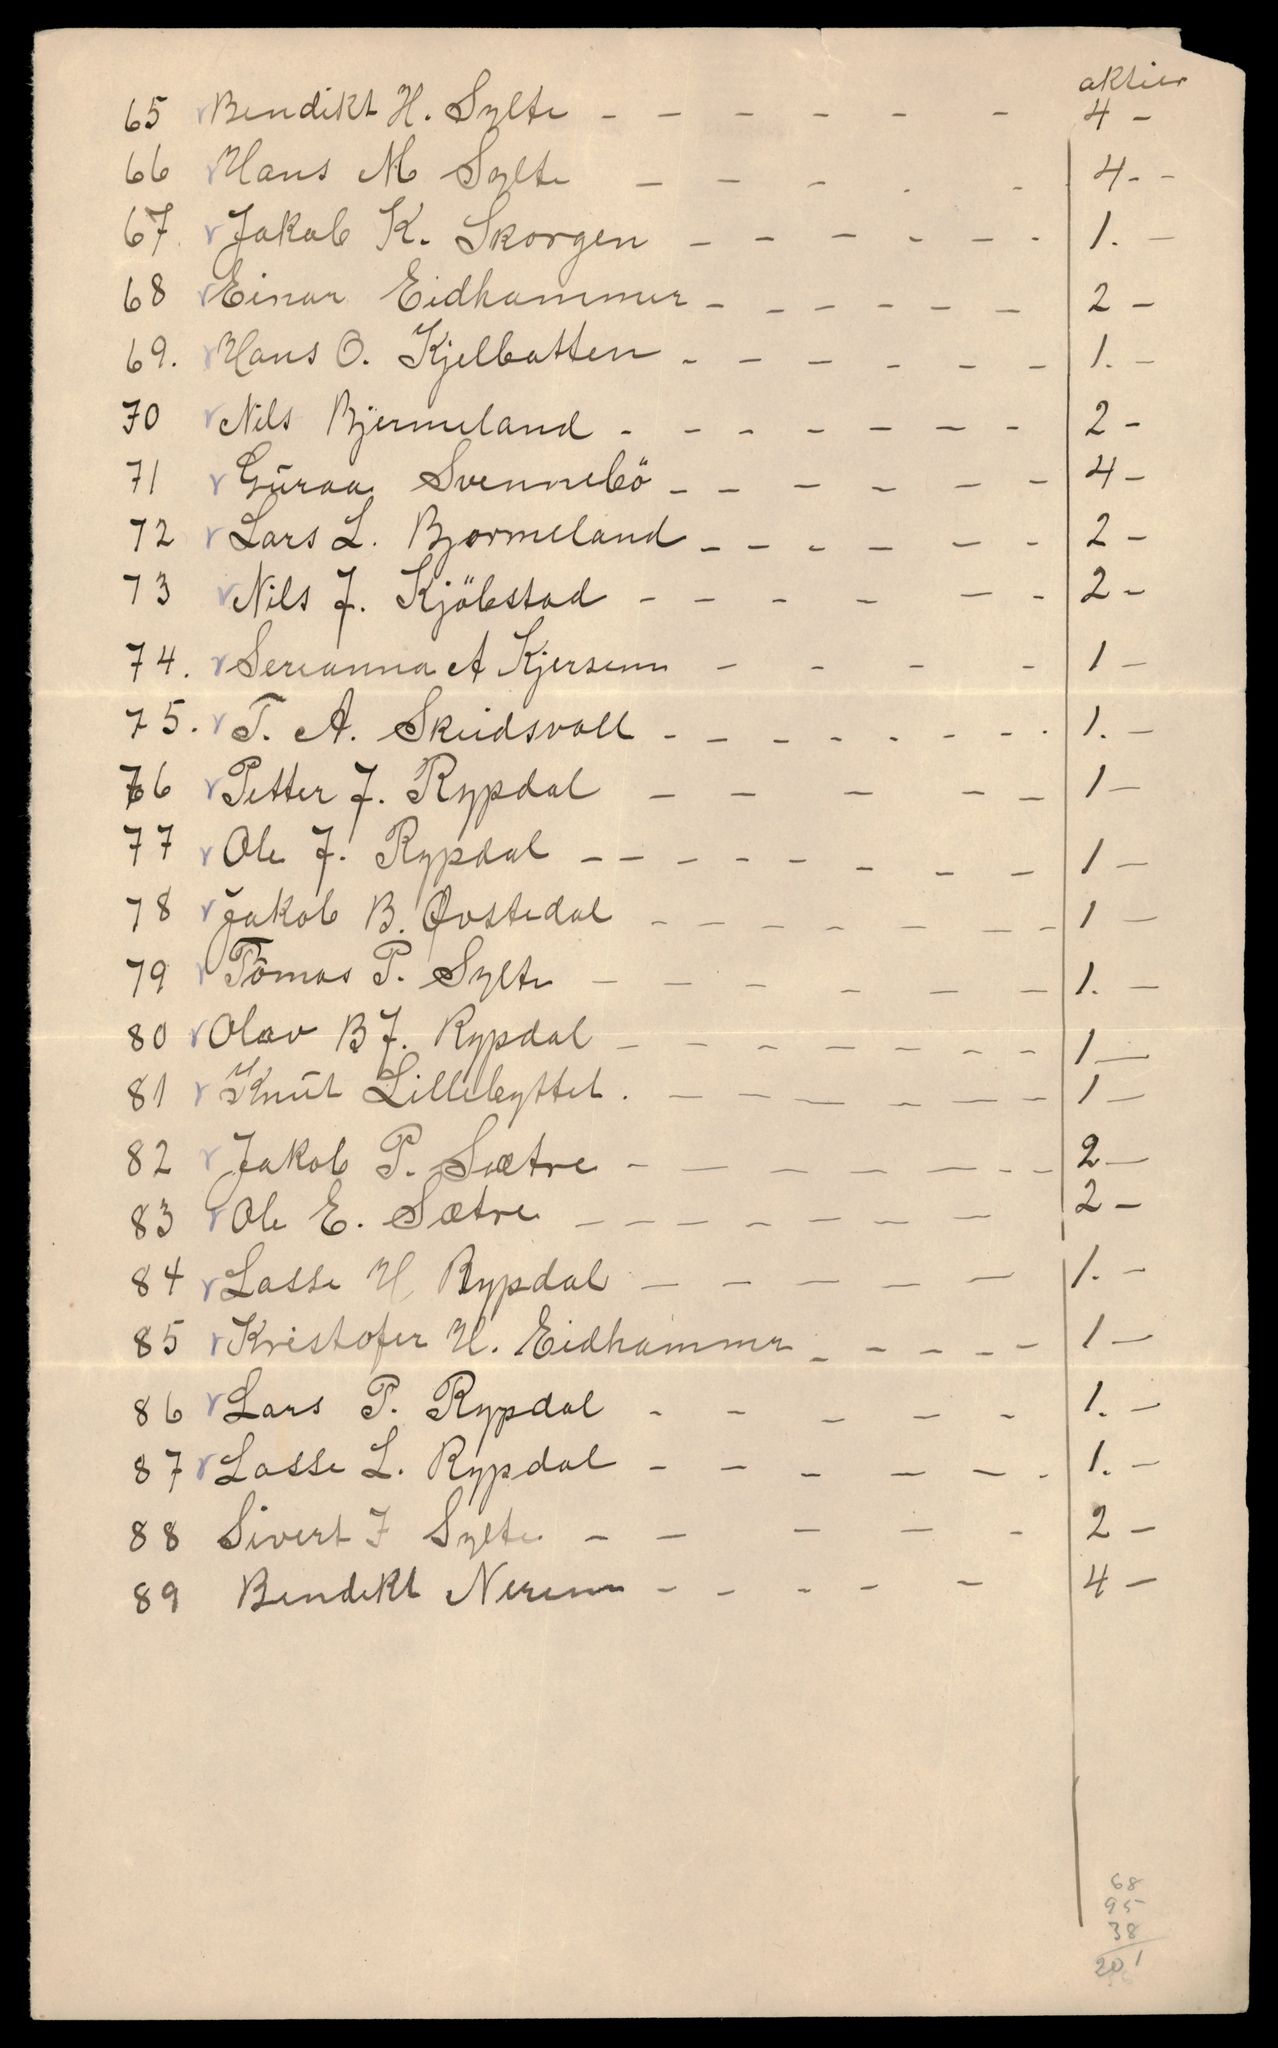 aktier
65 Bendikt H. Sylte - - - - - - 4 -
66 Hans M Sylte - - - - - 4 - -
67. Jakob K. Skorgen - - - - - - 1. -
68 Einar Eidhammer - - - - - - 2 -
69. Hans O. Kjelbotten - - - - - - 1. -
70 Nils Bjermeland - - - - - - - 2 -
71 Guraa Svennebö - - - - - - 4 -
72 Lars L. Bjormeland - - - - - - 2 -
73 Nils J. Kjöbstad - - - - - - 2 -
74. Serianna A Kjersem - - - - 1 -
75. T. A. Skeidsvoll - - - - - - - - 1. -
76 Petter J. Rypdal - - - - - 1 -
77 Ole J. Rypdal - - - - - - - - 1 -
78 Jakob B. Øvstedal - - - - - - - 1 -
79 Tomas P. Sylte - - - - - - - 1. -
80 Olav B J. Rypdal - - - - - - - 1 -
81 Knut Lillebyttet. - - - - - - 1 -
82 Jakob P. Sætre - - - - - - - 2 -
83 Ole E. Sætre - - - - - - - 2 -
84 Lasse H. Rypdal - - - - - 1. -
85 Kristofer H. Eidhammer - - - - - 1 -
86 Lars P. Rypdal - - - - - 1. -
87 Lasse L. Rypdal - - - - - - 1. -
88 Sivert J Sylte - - - - - 2 -
89 Bendikt Nerem - - - - - 4 -
68
95
38
201